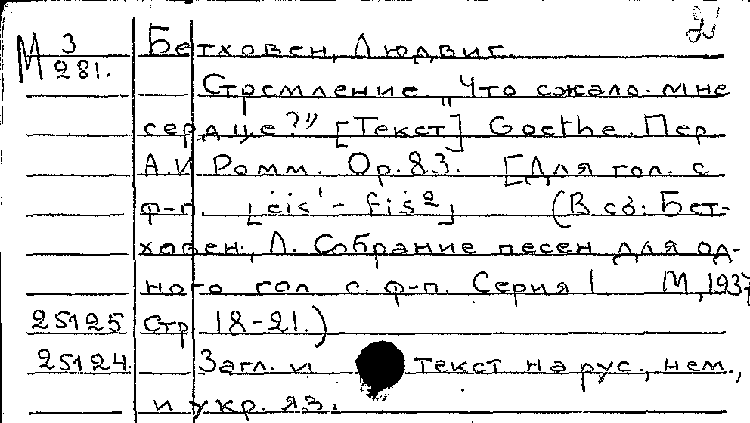 2
М 3 Бетховен, Людвиг.
281.
Стремление. "Что сжало мне
сердце?" [Текст] Goethe. Пер.
А.И Ромм. Op. 83. [Для гол. с
ф-п. [cis¹ - fis²] (В сб: Бет-
ховен, Л. Собрание песен для од-
ного гол с ф-п. Серия I М, 1937
25125 Стр 18-21.)
25124. Загл. и текст на рус., нем.,
и укр. яз.